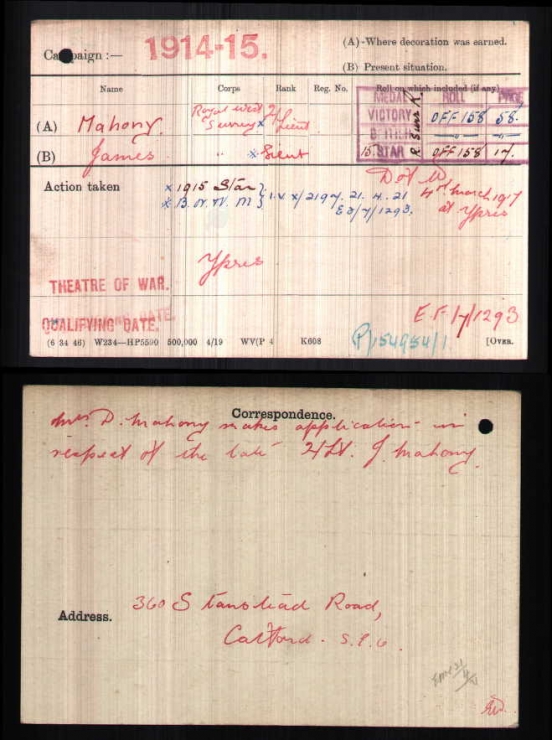 Campaign :— 1914-15.
(A)-Where decoration was earned.
(B) Present situation.
Name Corps Rank Reg. No. Roll on which included (if any)
MEDAL ROLL PAGE
(A) Mahony. Royal West Surrey x 2/Lieut
VICTORY OFF 158 58.
BRITISH
(B) James " x Lieut
15 STAR OFF 158 17.
Action taken x 1915 Star
x B. W. V. M I.V. x/2194. 21. 4. 21
EF/7/1293.
D of W
4th March 1917
at Ypres
Ypres
THEATRE OF WAR.
QUALIFYING DATE.
E.F./7/1293
P/54954/1.
(6 34 46) W234—HP5590 500,000 4/19 WV(P K608 [OVER.
Correspondence.
Mrs. D. Mahony makes application in
respect of the late 2/Lt. J. Mahony.
Address. 360 Stanstead Road,
Catford. S.E.6.